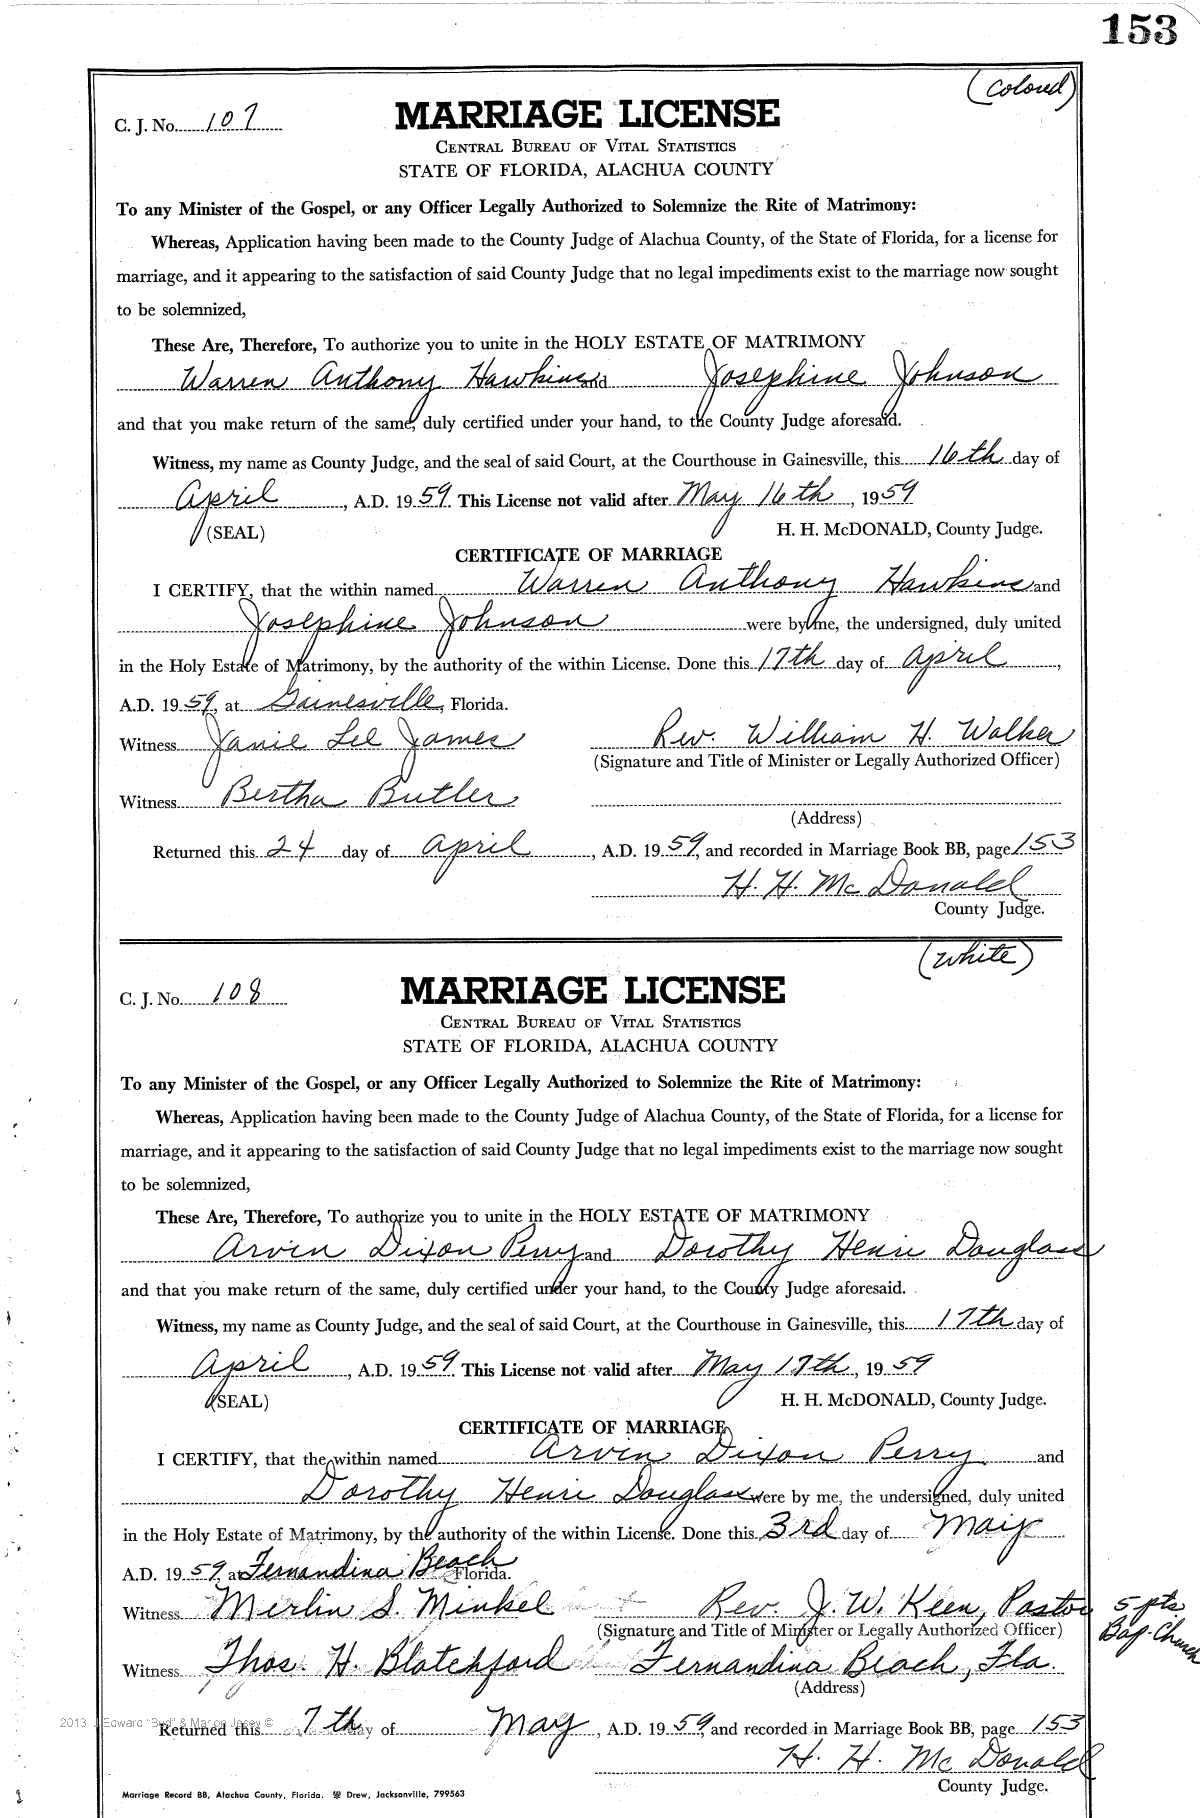 153
(Colored)
C. J. No. 107
MARRIAGE LICENSE
CENTRAL BUREAU OF VITAL STATISTICS
STATE OF FLORIDA, ALACHUA COUNTY
To any Minister of the Gospel, or any Officer Legally Authorized to Solemnize the Rite of Matrimony:
Whereas, Application having been made to the County Judge of Alachua County, of the State of Florida, for a license for
marriage, and it appearing to the satisfaction of said County Judge that no legal impediments exist to the marriage now sought
to be solemnized,
These Are, Therefore, To authorize you to unite in the HOLY ESTATE OF MATRIMONY
Warren Anthony Hawkins and Josephine Johnson
and that you make return of the same, duly certified under your hand, to the County Judge aforesaid.
Witness, my name as County Judge, and the seal of said Court, at the Courthouse in Gainesville, this 16th day of
April, A.D. 1959. This License not valid after May 16th, 1959
(SEAL) H. H. McDONALD, County Judge.
CERTIFICATE OF MARRIAGE
I CERTIFY, that the within named Warren Anthony Hawkins and
Josephine Johnson were by me, the undersigned, duly united
in the Holy Estate of Matrimony, by the authority of the within License. Done this 17th day of April,
A.D. 1959, at Gainesville, Florida.
Witness Janie Lee James Rev. William H. Walker
(Signature and Title of Minister or Legally Authorized Officer)
Witness Bertha Butler
(Address)
Returned this 24 day of April, A.D. 1959, and recorded in Marriage Book BB, page 153
H. H. McDonald
County Judge.
(White)
C. J. No. 108
MARRIAGE LICENSE
CENTRAL BUREAU OF VITAL STATISTICS
STATE OF FLORIDA, ALACHUA COUNTY
To any Minister of the Gospel, or any Officer Legally Authorized to Solemnize the Rite of Matrimony:
Whereas, Application having been made to the County Judge of Alachua County, of the State of Florida, for a license for
marriage, and it appearing to the satisfaction of said County Judge that no legal impediments exist to the marriage now sought
to be solemnized,
These Are, Therefore, To authorize you to unite in the HOLY ESTATE OF MATRIMONY
Arvin Dixon Perry and Dorothy Henri Douglass
and that you make return of the same, duly certified under your hand, to the County Judge aforesaid.
Witness, my name as County Judge, and the seal of said Court, at the Courthouse in Gainesville, this 17th day of
April, A.D. 1959. This License not valid after May 17th, 1959
(SEAL) H. H. McDONALD, County Judge.
CERTIFICATE OF MARRIAGE
I CERTIFY, that the within named Arvin Dixon Perry and
Dorothy Henri Douglass were by me, the undersigned, duly united
in the Holy Estate of Matrimony, by the authority of the within License. Done this 3rd day of May
A.D. 1959, at Fernandina Beach Florida.
Witness Merlin S. Minkel Rev. J. W. Keen, Pastor 5 pts
(Signature and Title of Minister or Legally Authorized Officer) Bap. Church
Witness Thos. H. Blatchford Fernandina Beach, Fla.
(Address)
2013 J Edward "Bud" & Marion Josey ©
Returned this 7th day of May, A.D. 1959, and recorded in Marriage Book BB, page 153
H. H. McDonald
County Judge.
Marriage Record BB, Alachua County, Florida. Drew, Jacksonville, 799563